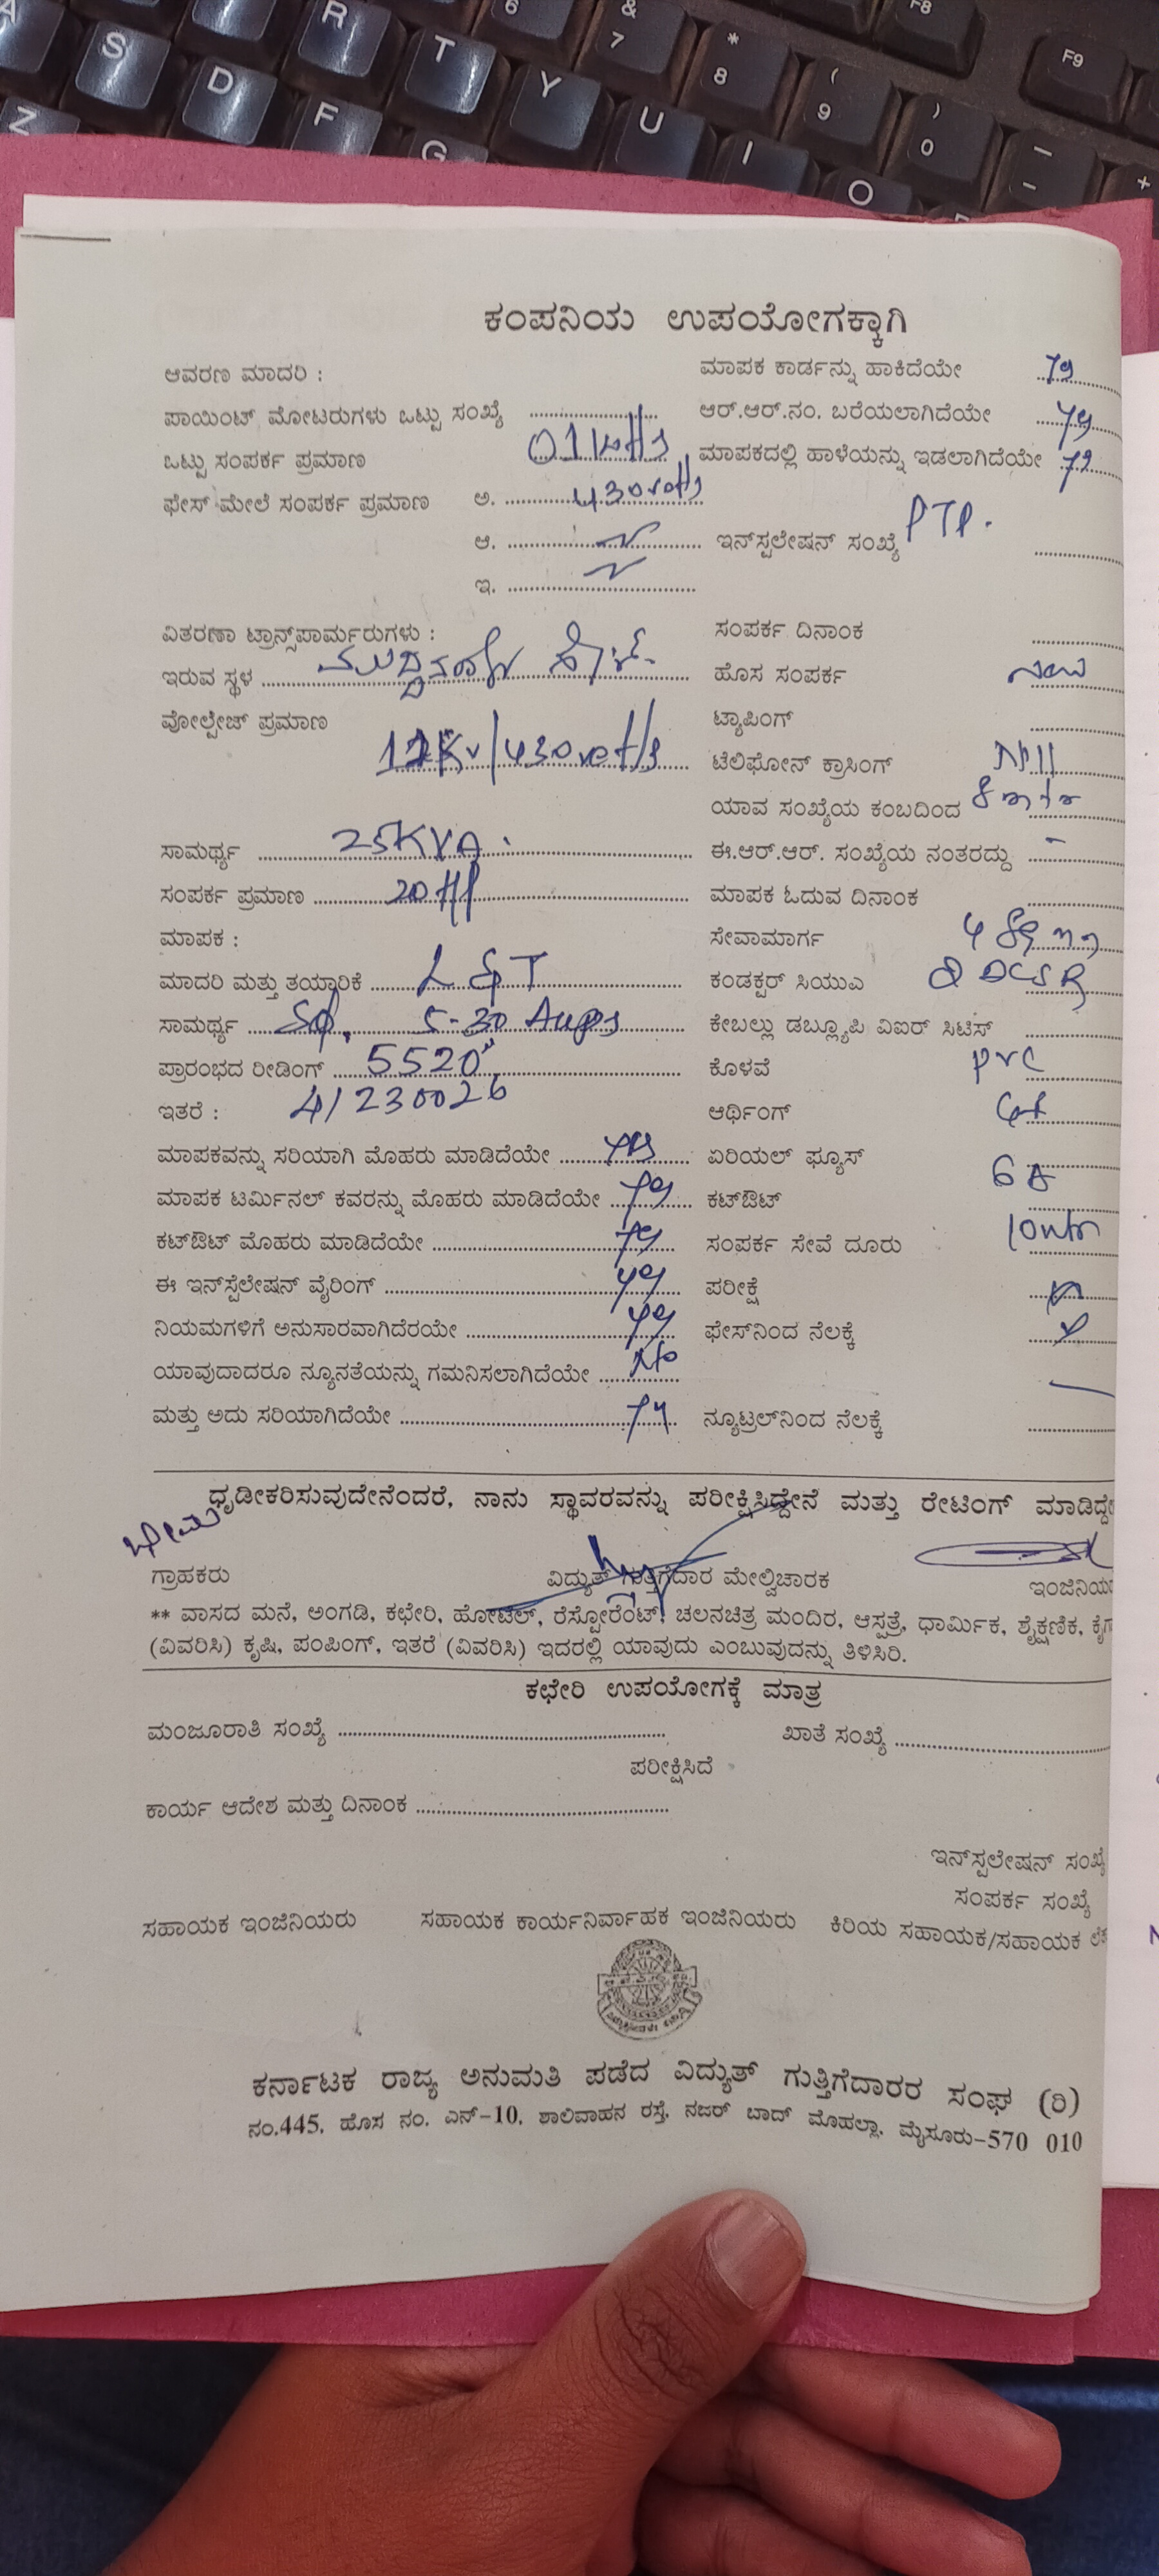 A
S
Z
R
D
F
T
G
6
Y
& 7
U
* 8
I
( 9
O
F8
) 0
F9
- _
+
ಕಂಪನಿಯ ಉಪಯೋಗಕ್ಕಾಗಿ
ಆವರಣ ಮಾದರಿ :
ಮಾಪಕ ಕಾರ್ಡನ್ನು ಹಾಕಿದೆಯೇ
ಪಾಯಿಂಟ್ ಮೋಟರುಗಳು ಒಟ್ಟು ಸಂಖ್ಯೆ
ಆರ್.ಆರ್.ನಂ. ಬರೆಯಲಾಗಿದೆಯೇ
ಒಟ್ಟು ಸಂಪರ್ಕ ಪ್ರಮಾಣ
ಮಾಪಕದಲ್ಲಿ ಹಾಳೆಯನ್ನು ಇಡಲಾಗಿದೆಯೇ
ಫೇಸ್ ಮೇಲೆ ಸಂಪರ್ಕ ಪ್ರಮಾಣ ಅ.
ಆ.
ಇನ್‌ಸ್ಪಲೇಷನ್ ಸಂಖ್ಯೆ PTP.
ಇ.
ವಿತರಣಾ ಟ್ರಾನ್ಸ್‌ಪಾರ್ಮರುಗಳು :
ಸಂಪರ್ಕ ದಿನಾಂಕ
ಇರುವ ಸ್ಥಳ
ಹೊಸ ಸಂಪರ್ಕ new
ವೋಲ್ಟೇಜ್ ಪ್ರಮಾಣ
ಟ್ಯಾಪಿಂಗ್
ಟೆಲಿಫೋನ್ ಕ್ರಾಸಿಂಗ್ Nil
ಯಾವ ಸಂಖ್ಯೆಯ ಕಂಬದಿಂದ 8 mtr
ಸಾಮರ್ಥ್ಯ 25KVA.
ಈ.ಆರ್.ಆರ್. ಸಂಖ್ಯೆಯ ನಂತರದ್ದು -
ಸಂಪರ್ಕ ಪ್ರಮಾಣ 20 HP
ಮಾಪಕ ಓದುವ ದಿನಾಂಕ
ಮಾಪಕ :
ಸೇವಾಮಾರ್ಗ
ಮಾದರಿ ಮತ್ತು ತಯ್ಯಾರಿಕೆ L & T
ಕಂಡಕ್ಟರ್ ಸಿಯುಎ
ಸಾಮರ್ಥ್ಯ 5-30 Amps
ಕೇಬಲ್ಲು ಡಬ್ಲ್ಯೂಪಿ ವಿಐರ್ ಸಿಟಿಸ್
ಪ್ರಾರಂಭದ ರೀಡಿಂಗ್ 5520
ಕೊಳವೆ pvc
ಇತರೆ : 41230026
ಆರ್ಥಿಂಗ್
ಮಾಪಕವನ್ನು ಸರಿಯಾಗಿ ಮೊಹರು ಮಾಡಿದೆಯೇ yes
ಏರಿಯಲ್ ಫ್ಯೂಸ್
ಮಾಪಕ ಟರ್ಮಿನಲ್ ಕವರನ್ನು ಮೊಹರು ಮಾಡಿದೆಯೇ
ಕಟ್‌ಔಟ್
ಕಟ್‌ಔಟ್ ಮೊಹರು ಮಾಡಿದೆಯೇ
ಸಂಪರ್ಕ ಸೇವೆ ದೂರು
ಈ ಇನ್‌ಸ್ಪೆಲೇಷನ್ ವೈರಿಂಗ್
ಪರೀಕ್ಷೆ
ನಿಯಮಗಳಿಗೆ ಅನುಸಾರವಾಗಿದೆರಯೇ
ಫೇಸ್‌ನಿಂದ ನೆಲಕ್ಕೆ
ಯಾವುದಾದರೂ ನ್ಯೂನತೆಯನ್ನು ಗಮನಿಸಲಾಗಿದೆಯೇ No
ಮತ್ತು ಅದು ಸರಿಯಾಗಿದೆಯೇ
ನ್ಯೂಟ್ರಲ್‌ನಿಂದ ನೆಲಕ್ಕೆ
ಧೃಡೀಕರಿಸುವುದೇನೆಂದರೆ, ನಾನು ಸ್ಥಾವರವನ್ನು ಪರೀಕ್ಷಿಸಿದ್ದೇನೆ ಮತ್ತು ರೇಟಿಂಗ್ ಮಾಡಿದ್ದೇ
ಗ್ರಾಹಕರು
ವಿದ್ಯುತ್ ಗುತ್ತಿಗೆದಾರ ಮೇಲ್ವಿಚಾರಕ
ಇಂಜಿನಿಯ
** ವಾಸದ ಮನೆ, ಅಂಗಡಿ, ಕಛೇರಿ, ಹೋಟೆಲ್, ರೆಸ್ಟೋರೆಂಟ್, ಚಲನಚಿತ್ರ ಮಂದಿರ, ಆಸ್ಪತ್ರೆ, ಧಾರ್ಮಿಕ, ಶೈಕ್ಷಣಿಕ,
(ವಿವರಿಸಿ) ಕೃಷಿ, ಪಂಪಿಂಗ್, ಇತರೆ (ವಿವರಿಸಿ) ಇದರಲ್ಲಿ ಯಾವುದು ಎಂಬುವುದನ್ನು ತಿಳಿಸಿರಿ.
ಕಛೇರಿ ಉಪಯೋಗಕ್ಕೆ ಮಾತ್ರ
ಮಂಜೂರಾತಿ ಸಂಖ್ಯೆ
ಖಾತೆ ಸಂಖ್ಯೆ
ಪರೀಕ್ಷಿಸಿದೆ
ಕಾರ್ಯ ಆದೇಶ ಮತ್ತು ದಿನಾಂಕ
ಇನ್‌ಸ್ಪಲೇಷನ್ ಸಂಖ್ಯೆ
ಸಂಪರ್ಕ ಸಂಖ್ಯೆ
ಸಹಾಯಕ ಇಂಜಿನಿಯರು
ಸಹಾಯಕ ಕಾರ್ಯನಿರ್ವಾಹಕ ಇಂಜಿನಿಯರು
ಕಿರಿಯ ಸಹಾಯಕ/ಸಹಾಯಕ
ಕರ್ನಾಟಕ ರಾಜ್ಯ ಅನುಮತಿ ಪಡೆದ ವಿದ್ಯುತ್ ಗುತ್ತಿಗೆದಾರರ ಸಂಘ (ರಿ)
ನಂ.445, ಹೊಸ ನಂ. ಎನ್-10, ಶಾಲಿವಾಹನ ರಸ್ತೆ, ನಜರ್ ಬಾದ್ ಮೊಹಲ್ಲಾ, ಮೈಸೂರು-570 010